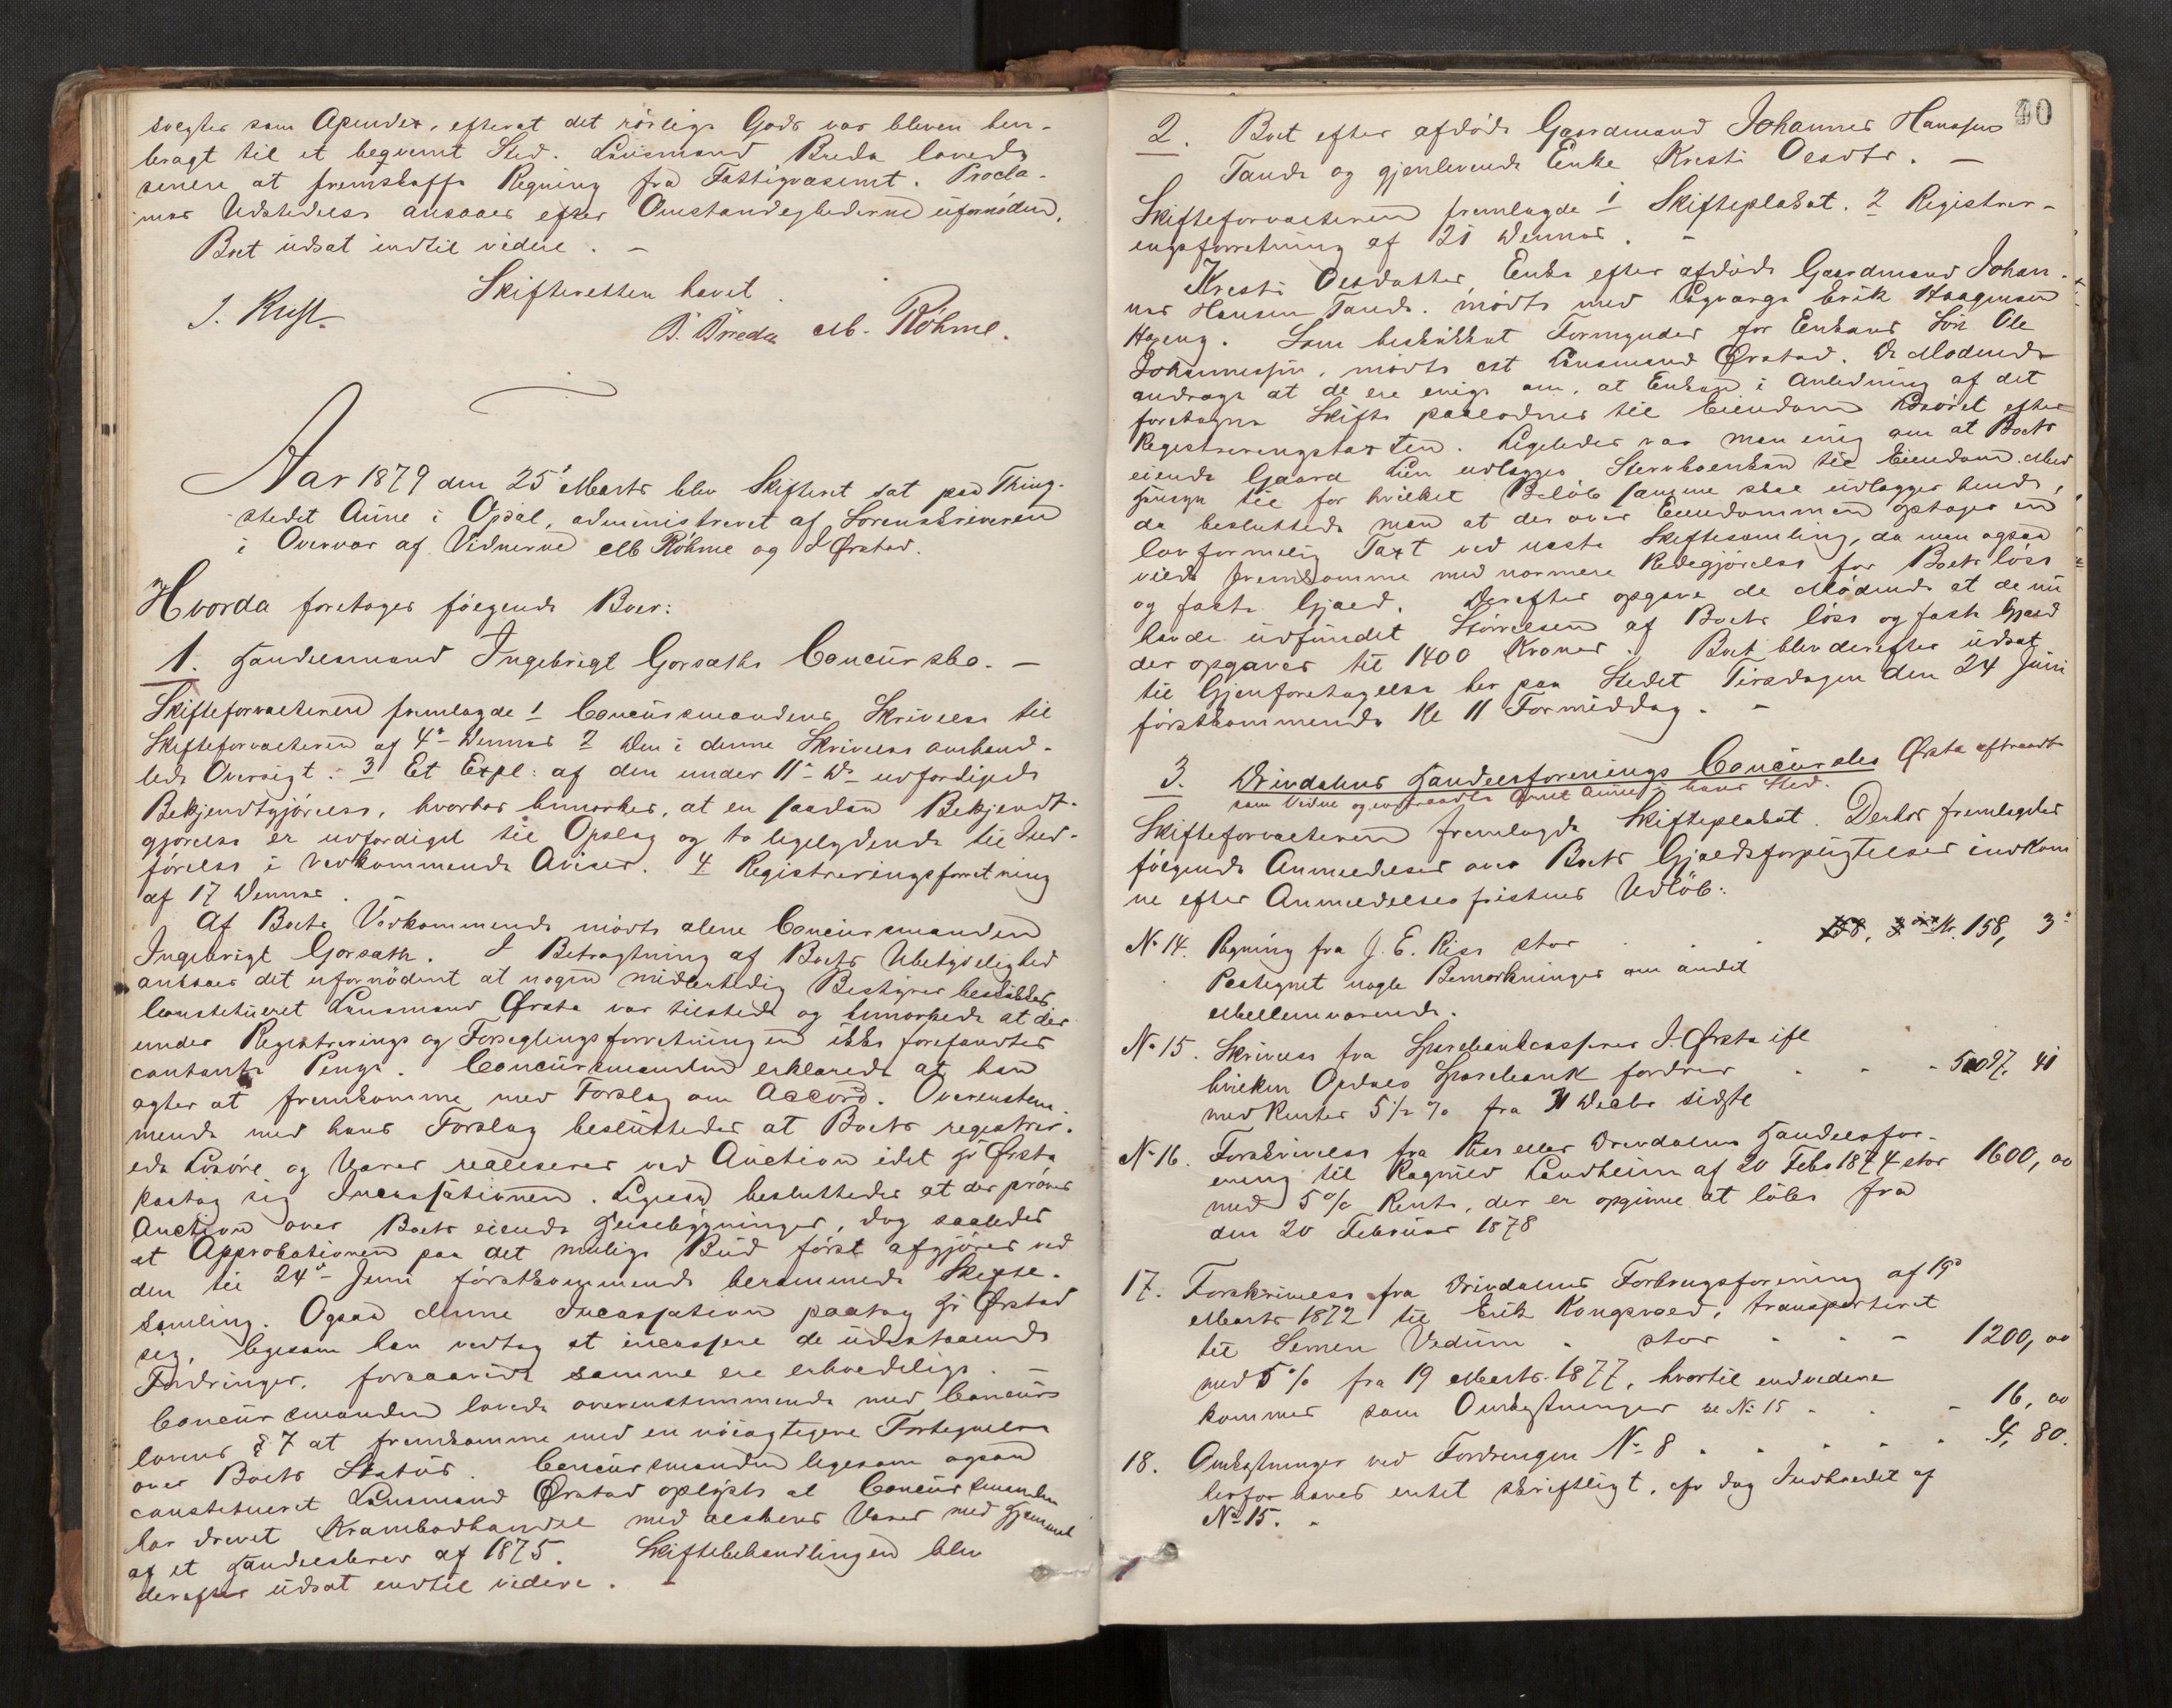 sælges som Apendex, efterat det rörlige Gods var bleven hen-
bragt til et beqvemt Sted. Lensmand Breda lovede
senere at fremskaffe Regning fra Fattigvæsenet. Procla-
mas Udstedelse ansaaes efter Omstændighederne ufornöden.
Boet udsat indtil videre. -
Skifteretten hævet.
J. Rust. B. Breda Mb. Röhme.
Aar 1879 den 25 Marts blev Skifteret sat paa Thing-
stedet Aune i Opdal, administreret af Sorenskriveren
i Overvær af Vidnerne Mb Röhme og J Ørstad.
Hvorda foretoges fölgende Boer:
1. Handelsmand Ingebrigt Gorsæths Concursbo. -
Skifteforvalteren fremlagde 1 Concursmandens Skrivelse til
Skifteforvalteren af 4de dennes 2 Den i denne Skrivelse omhand-
lede Oversigt. 3 Et Expl: af den under 11te Ds udfærdigede
Bekjendtgjörelse, hvorhos bemærkes, at en saadan Bekjendt-
gjörelse er udfærdiget til Opslag og to ligelydende til Ind-
förelse i vedkommende Aviser. 4 Registreringsforretning
af 17 Dennes.
Af Boets Vedkommende mödte alene Concursmanden
Ingebrigt Gorsæth. I Betragtning af Boets Ubetydelighed
ansaaes det ufornödent at nogen midlertidig Bestyrer beskikkes.
Constitueret Lensmand Ørsta var tilstede og bemærkede at der
under Registrerings og Forseglingsforretningen ikke forefandtes
contante Penge. Concursmanden erklærede at han
agter at fremkomme med Forslag om Accord. Overenstem-
mende med hans Forslag besluttedes at Boets registrer-
ede Lösöre og Varer realiseres ved Auction idet Hr Ørsta
paatog sig Incassationen. Ligesaa besluttedes at der pröves
Auction over Boets eiende Huusebygninger, dog saaledes
at Approbationen paa det mulige Bud först afgjöres ved
den til 24de Juni förstkommende berammede Skifte-
samling. Ogsaa denne Incassation paatog Hr Ørstad
sig, ligesom han vedtog at incassere de udestaaende
Fordringer, forsaavidt samme ere erholdelige. -
Concursmanden lovede overensstemmende med Concurs
lovens § 7 at fremkomme med en nöiagtigere Fortegnelse
over Boets Status. Concursmanden ligesom ogsaa
constitueret Lensmand Ørstad oplyste at Concursmanden
har drevet Krambodhandel med alskens Varer med Hjemmel
af et Handelsbrev af 1875. Skiftebehandlingen blev
derefter udsat indtil videre. -
40
2. Boet efter afdöde Gaardmand Johannes Hansen
Tande og gjenlevende Enke Kresti Olsdtr. -
Skifteforvalteren fremlagde 1 Skifteplakat. 2 Registrer-
ingsforretning af 21 Dennes. -
Kresti Olsdatter, Enke efter afdöde Gaardmand Johan-
nes Hansen Tande. mödte med Lagværge Erik Haagensen
Hageng. Som beskikket Formynder for Enkens Sön Ole
Johannessen, mödte cst Lensmand Ørstad. De Mödende
androge at de ere enige om, at Enken i Anledning af det
foretagne Skifte paalodnes til Eiendom Lösöret efter
Registreringstaxten. Ligeledes var man enig om at Boets
eiende Gaard Lien udlægges Stervboenken til Eiendom. Med
Hensyn til for hvilket Belöb samme skal udlægges hende,
da besluttede man at der over Eiendommen optages en
lovformelig Taxt ved næste Skiftesamling, da man ogsaa
vilde fremkomme med nærmere Redegjörelse for Boets löse
og faste Gjæld. Derefter opgave de Mödende at de nu
havde udfundet Störrelsen af Boets löse og faste Gjæld
der opgaves til 1400 Kroner. Boet blev derefter udsat
til Gjenforetagelse her paa Stedet Tirsdagen den 24 Juni
förstkommende Kl 11 Formiddag. -
3. Drivdalens Handelsforenings Concursbo Ørsta aftraadte
som Vidne og indtraadte Arnt Aune i hans Sted.
Skifteforvalteren fremlagde Skifteplakat. Derhos fremlagdes
fölgende Anmeldelser over Boets Gjældsforpligtelser indkom
ne efter Anmeldelsesfristens Udlöb:
No 14. Regning fra J. E. Riss stor . . . Kr. 158, 3
Paategnet nogle Bemærkninger om andet
Mellemværende.
No 15. Skrivelse fra Sparebankcasserer J. Ørsta ifl
hvilken Opdals Sparebank fordrer - - - 5007, 41
med Renter 5½ % fra 31 Decbr sidste
No 16. Forskrivelse fra Riss eller Drivdalens Handelsfor-
ening til Ragnild Landheim af 20 Febr 1874 stor 1600, 00
med 5 % Rente, der er opgivne at löbe fra
den 20 Februar 1878
17. Forskrivelse fra Drivdalens Forbrugsforening af 19de
Marts 1872 til Erik Kongsvold, transporteret
til Semen Vedum . stor - - - 1200, 00
med 5 % fra 19 Marts 1877, hvortil endvidere
kommer som Omkostninger se No 15 - - - 16, 00
18. Omkostninger ved Fordringen No 8 . . . . 4, 80.
herfor haves intet skriftligt, cfr dog Indholdet af
No 15. -